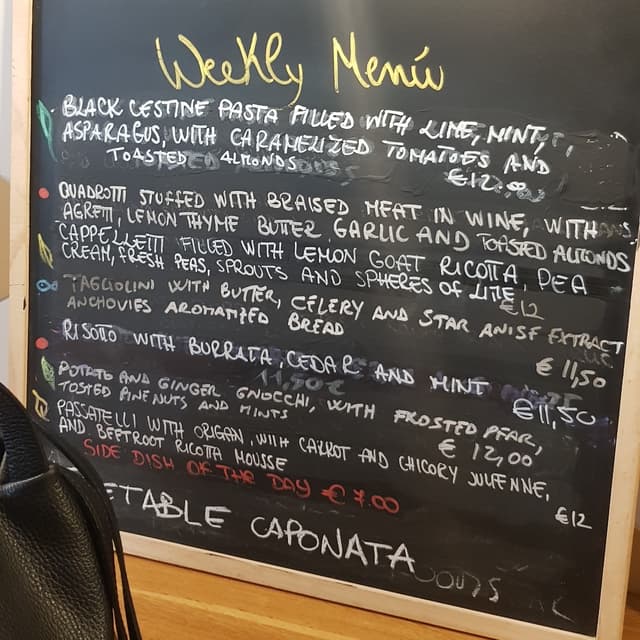 Weekly Menù
BLACK CESTINE PASTA FILLED WITH LIME, MINT,
ASPARAGUS, WITH CARAMELIZED TOMATOES AND
TOASTED ALMONDS
€12,00
QUADROTTI STUFFED WITH BRAISED MEAT IN WINE, WITH
AGRETTI, LEMON THYME BUTTER GARLIC AND TOASTED ALMONDS
CAPPELLETTI FILLED WITH LEMON GOAT RICOTTA, PEA
CREAM, FRESH PEAS, SPROUTS AND SPHERES OF LIME
€12
TAGLIOLINI WITH BUTTER, CELERY AND STAR ANISE EXTRACT
ANCHOVIES AROMATIZED BREAD
€11,50
RISOTTO WITH BURRATA, CEDAR AND MINT
€11,50
POTATO AND GINGER GNOCCHI, WITH FROSTED PEAR,
TOSTED PINE NUTS AND MINTS
€ 12,00
PASSATELLI WITH ORIGAN, WITH CARROT AND CHICORY JULIENNE,
AND BEETROOT RICOTTA MOUSSE
€12
SIDE DISH OF THE DAY € 7.00
ETABLE CAPONATA